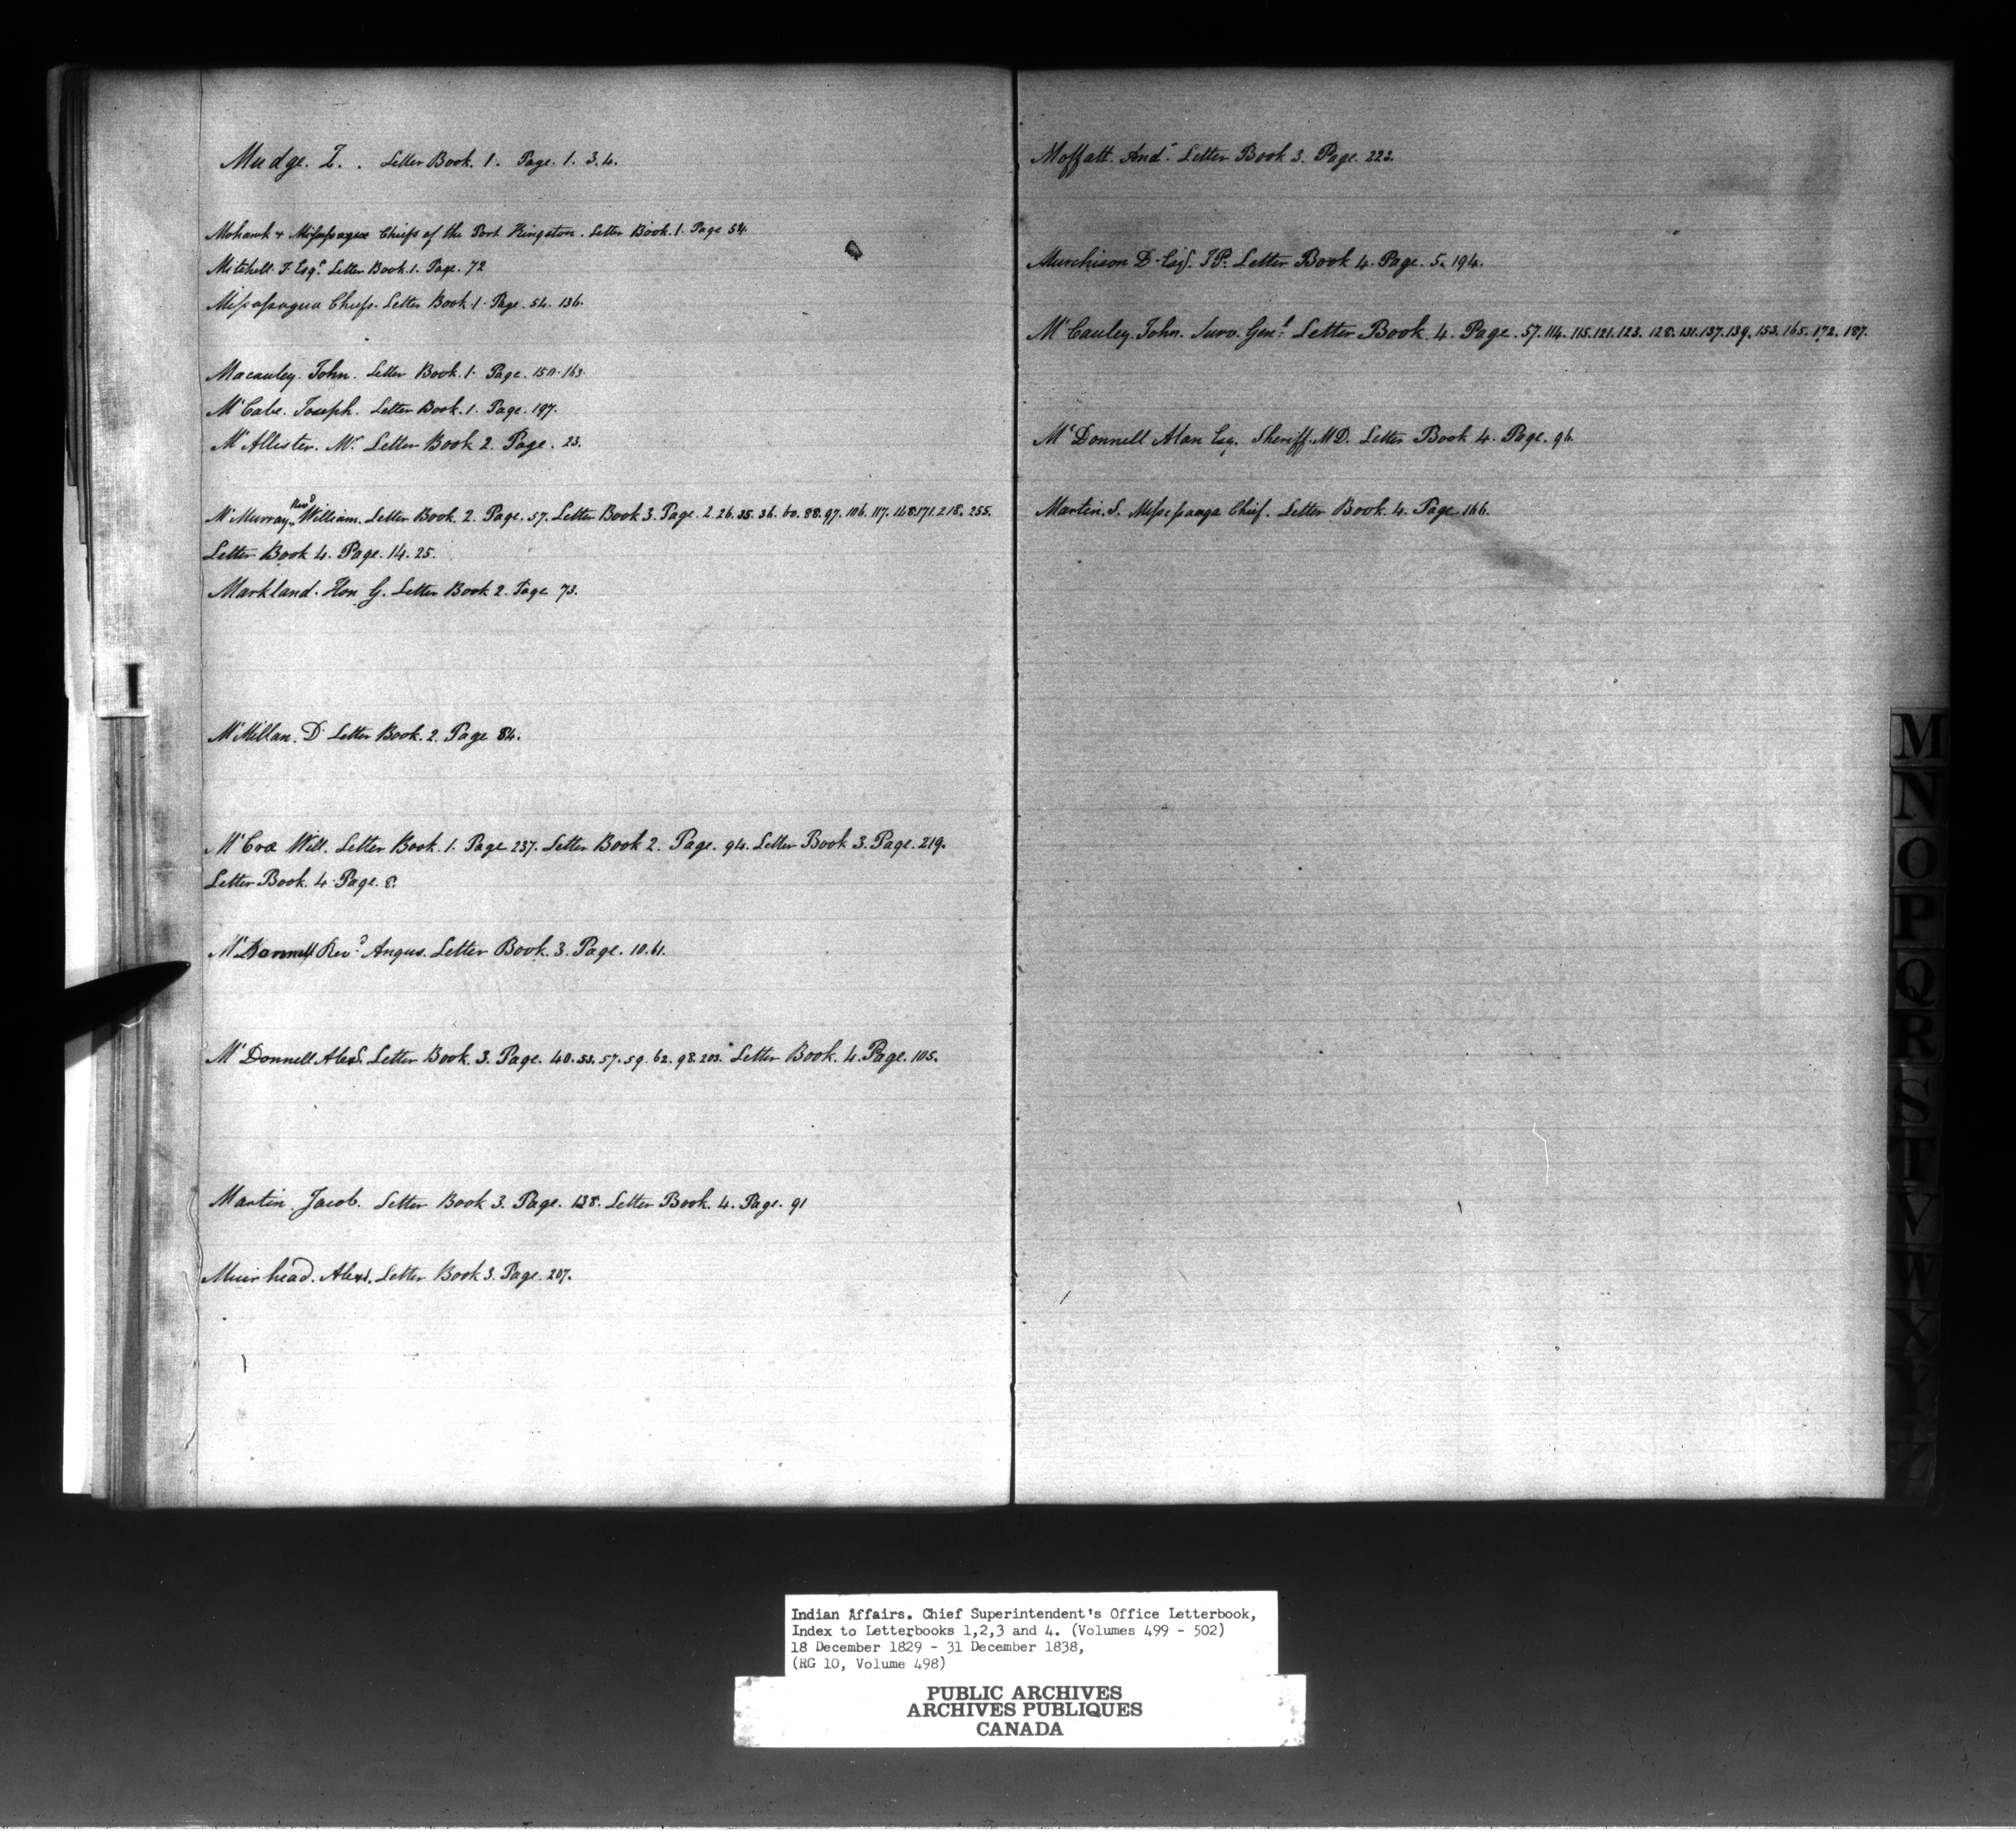 Mudge. Z. . Letter Book. 1. Page. 1. 3. 4.
Mohawk & Missisagua Chiefs of the Port Kingston. Letter Book. 1. Page 54.
Mitchell. J. Esqr. Letter Book. 1. Page. 72
Missassagua Chiefs. Letter Book. 1. Page. 54. 136.
Macauley. John. Letter Book. 1. Page. 150. 163.
McCabe. Joseph. Letter Book. 1. Page. 197.
McAllister. Mr. Letter Book 2. Page. 23.
McMurray Revd William. Letter Book. 2. Page. 57. Letter Book 3. Page. 2. 26. 35. 36. 60. 88. 97. 106. 117. 148. 171. 218. 255.
Letter Book 4. Page. 14. 25.
Markland. Hon G. Letter Book 2. Page 73.
McMillan. D. Letter Book. 2. Page 84.
McCrae Will. Letter Book. 1. Page 237. Letter Book 2. Page. 94. Letter Book 3. Page. 219.
Letter Book. 4. Page. 8.
McDonnell Revd Angus. Letter Book. 3. Page. 10. 61.
McDonnell Alexr. Letter Book. 3. Page. 40. 53. 57. 59. 62. 98. 203. Letter Book. 4. Page. 105.
Martin. Jacob. Letter Book 3. Page. 138. Letter Book. 4. Page. 91
Muirhead. Alexr. Letter Book 3. Page. 207.
Moffatt. Andw. Letter Book 3. Page. 223.
Murchison D. Esqr. J P. Letter Book 4. Page. 5. 194.
McCauley. John. Surv. Genl. Letter Book. 4. Page. 57. 114. 115. 121. 123. 128. 131. 137. 139. 153. 165. 172. 187.
McDonnell Alan Esq. Sheriff. M D. Letter Book 4. Page. 96.
Martin. S. Missisauga Chief. Letter Book. 4. Page 166.
I
M
N
O
P
Q
R
S
T
V
W
X
Y
Z
Indian Affairs. Chief Superintendent's Office Letterbook,
Index to Letterbooks 1,2,3 and 4. (Volumes 499 - 502)
18 December 1829 - 31 December 1838,
(RG 10, Volume 498)
PUBLIC ARCHIVES
ARCHIVES PUBLIQUES
CANADA